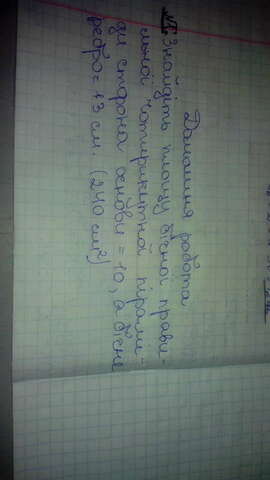 Домашня робота
№1 Знайдіть площу бічної прави-
льної чотирикутної пірамі-
ди сторона основи = 10, а бічне
ребро = 13 см. (240 см²)